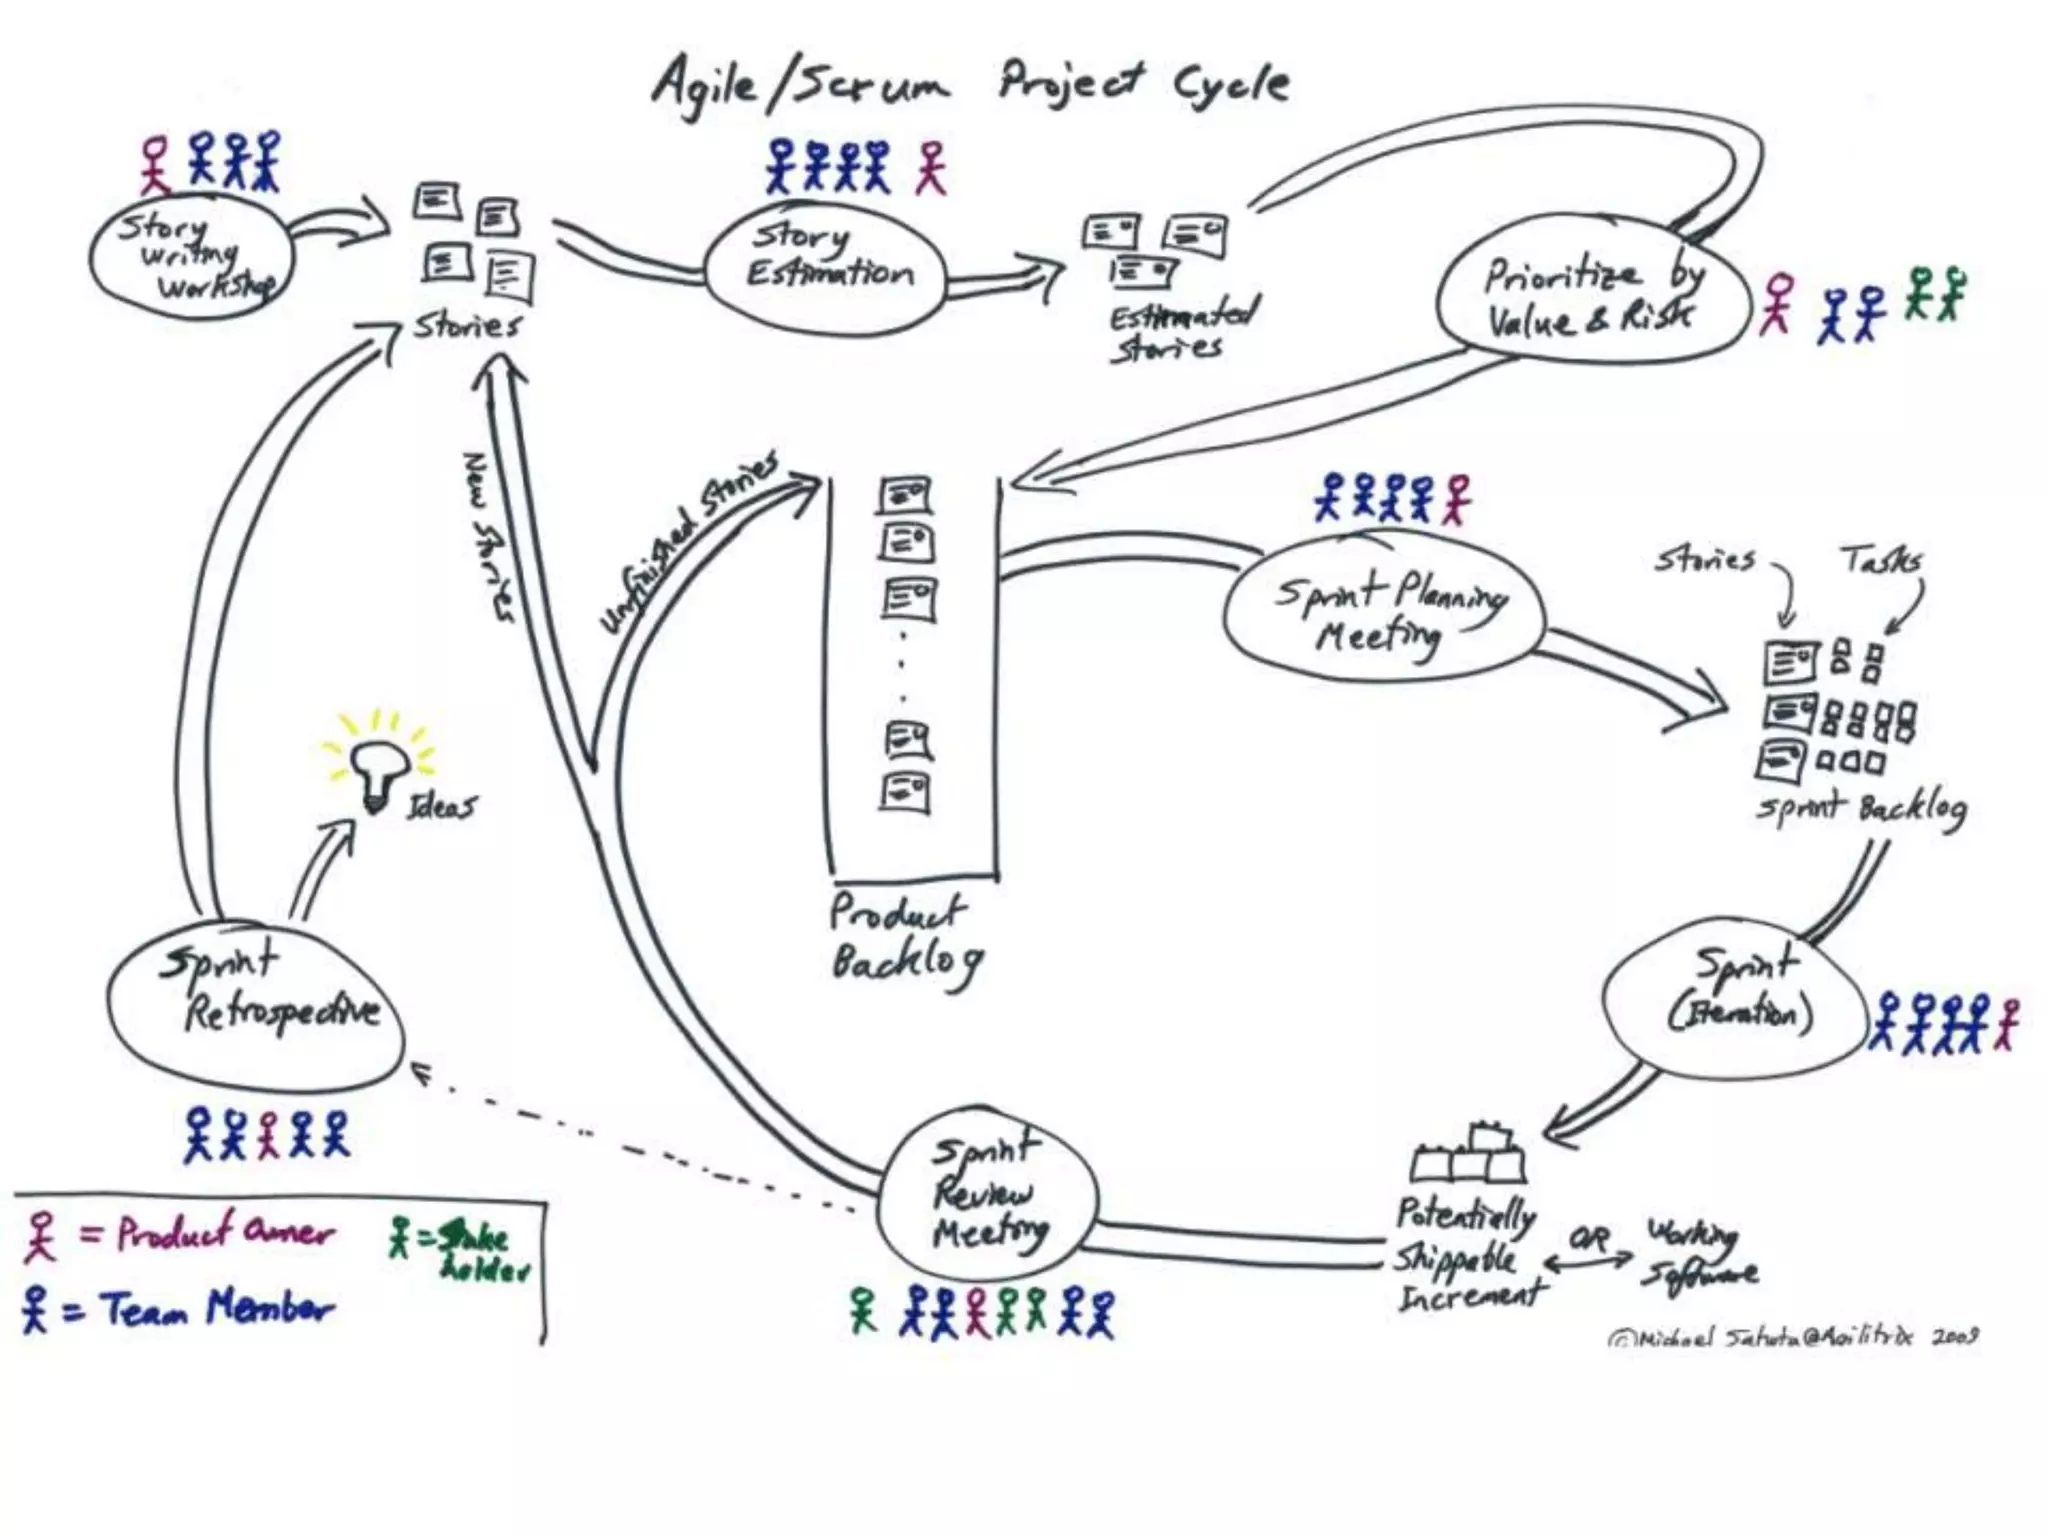 Agile/Scrum Project Cycle
Story
Writing
Workshop
Stories
Story
Estimation
Estimated
Stories
Prioritize by
Value & Risk
New Stories
Unfinished Stories
Product
Backlog
Sprint Planning
Meeting
Stories
Tasks
Sprint Backlog
Sprint
(Iteration)
Potentially
Shippable
Increment
OR
Working
Software
Sprint
Review
Meeting
Sprint
Retrospective
Ideas
= Product Owner
= Stake
holder
= Team Member
© Michael @ Agilitrix 2009